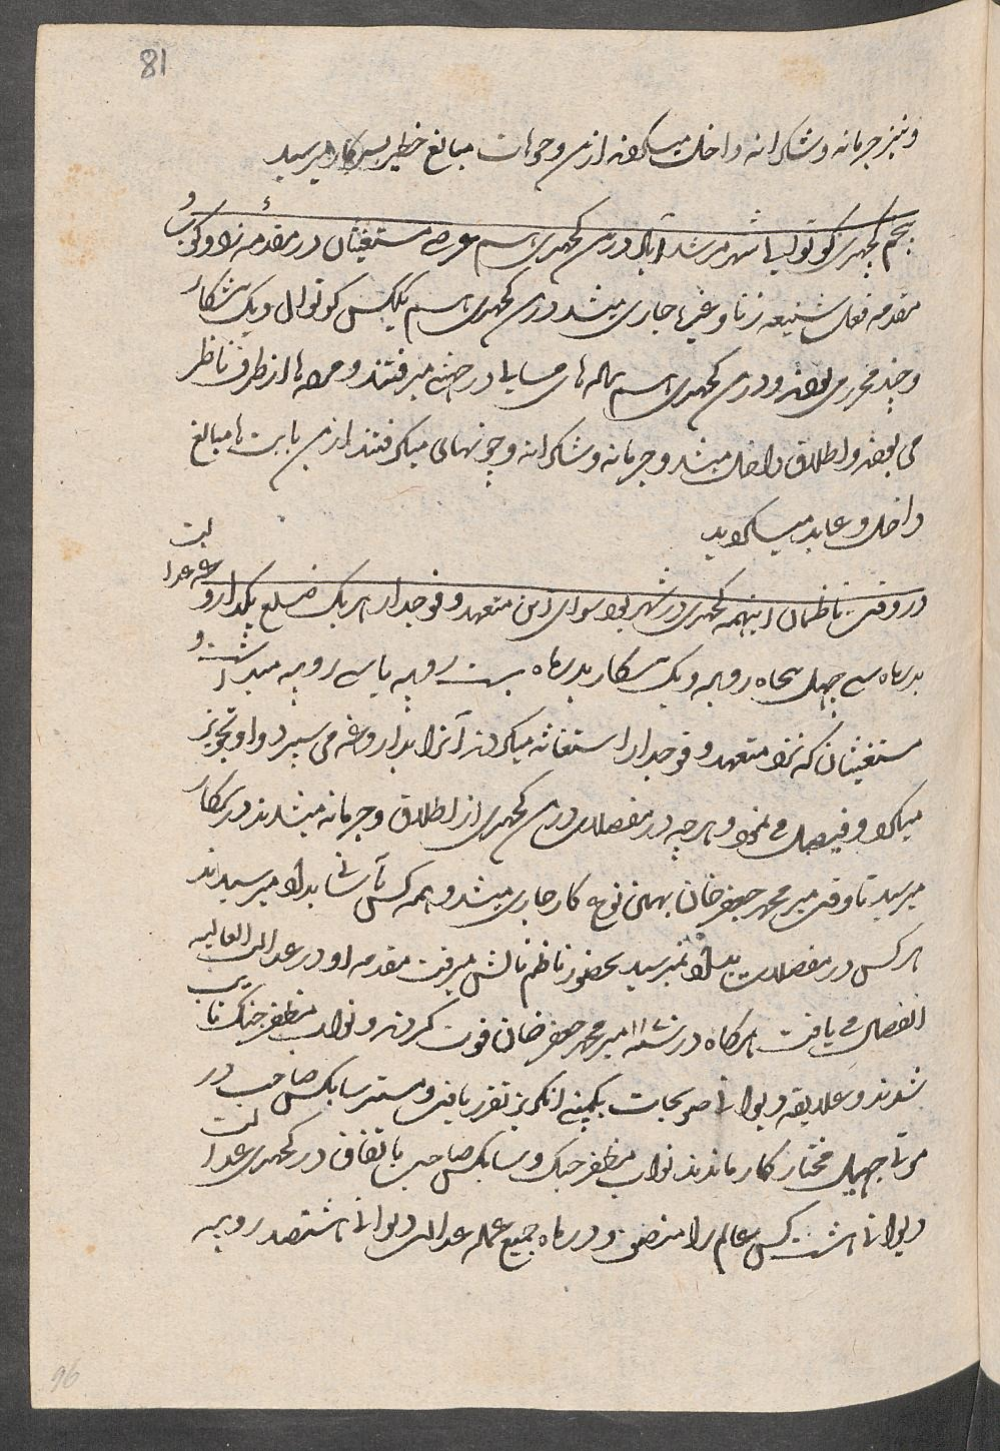 81
و نیز جرمانه و شکرانه داخل میکردند ازین وجوهات مبالغ خطیر بسرکار میرسید
پنجم کچهری کوتوالی شهر مرشدآباد درین کچهری اسم عرضه مستغیثان در مقدمه زد و کوب و
مقدمه فعل شنیعه زنا و غیره جاری میشد درین کچهری اسم یککس کوتوال و یک پیشکار
و چند محرر می بودند و درین کچهری اسم پیاله های مسایل در ضمنی میرفتند و مردها از طرف ناظر
می بودند و اطلاق داخل میشد و جرمانه و شکرانه و چوتهائی میگرفتند ازین بابت ها مبالغ
داخل و عاید میگردید
در وقت ناظمان اینهمه کچهری در شهر بود سوای این متعهد و فوجدار هر یک ضلع یکداروغه عدالت
بدرماه سی چهل پنجاه روپیه و یک پیشکار بدرماه بیست روپیه یا سی روپیه میداشت و
مستغیثان که نزد متعهد و فوجدار استغاثه میکردند آنرا بداروغه می سپرد و او تجویز
میکرد و فیصل می نمود و هرچه در مفصلات درین کچهری از اطلاق و جرمانه میشدند در سرکار
میرسید تا وقت میر محمد جعفر خان بهمین نوع کار جاری میشد و همه کس بآسانی بداد میرسیدند
هر کس در مفصلات بداد نمیرسید بحضور ناظم نالش میرفت مقدمه او در عدالت العالیه
انفصال می یافت هرگاه در سنه میر محمد جعفر خان فوت کردند و نواب مظفر جنگ نایب
شدند و علاقه دیوانی صوبجات بکمپنی انگریز تقرر یافت و مستر سایکس صاحب در
مرتی جهیل مختار کار ماندند نواب مظفر جنگ و سایکس صاحب باتفاق در کچهری عدالت
دیوانی هشت کس عالم را منصف و درماه جمیع عمله عدالت دیوانی هشتصد روپیه
96